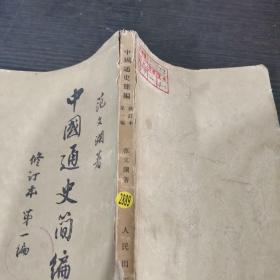 范文瀾著
中國通史簡編
修訂本 第一編
中國通史簡編
修訂本
第一編
范文瀾著
人民出